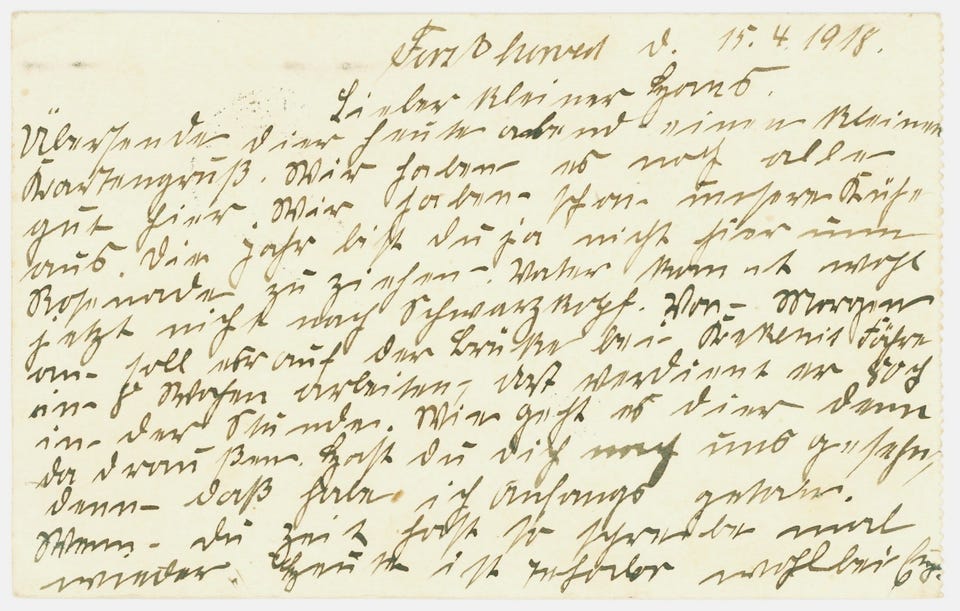 d. 15.4.1918.
Lieber kleiner Hans.
Übersende dier heute abend einen kleinen
Kartengruß. Wir haben es noch alle
gut hier. Wir haben schon unsere Kühe
aus. Die Jahr bist du ja nicht hier um
zu ziehen. Vater kommt wohl
jetzt nicht nach Schwarzkopf. Von Morgen
an soll er auf der Brüke bei Fähre
in 8 Wochen arbeiten, dort verdient er
in der Stunde. Wie geht es dier denn
da draußen. Hast du dich nach uns gesehn,
denn daß habe ich Anfangs getan.
Wenn du zeit hast so schreibe mal
wieder. Heute ist wohl bei